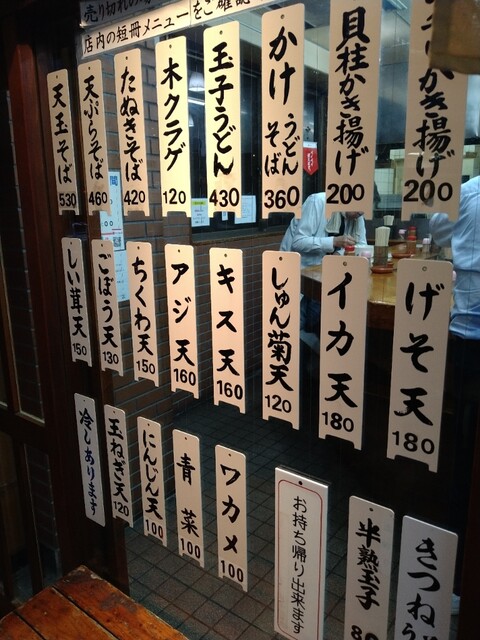 売り切れの
をご確認
店内の短冊メニュー
かき揚げ
200
貝柱かき揚げ
200
かけうどんそば
360
玉子うどん
430
木クラゲ
120
たぬきそば
420
天ぷらそば
460
天玉そば
530
げそ天
180
イカ天
180
しゅん菊天
120
キス天
160
アジ天
160
ちくわ天
150
ごぼう天
130
しい茸天
150
きつねう
半熟玉子
お持ち帰り出来ます
ワカメ
100
青菜
100
にんじん天
100
玉ねぎ天
120
冷しあります